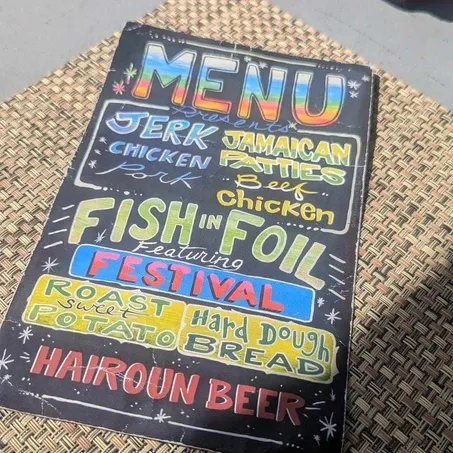 MENU
Presents
JERK
CHICKEN
Pork
JAMAICAN
PATTIES
Beef
Chicken
FISH IN FOIL
Featuring
FESTIVAL
ROAST
Sweet
POTATO
Hard Dough
BREAD
HAIROUN BEER